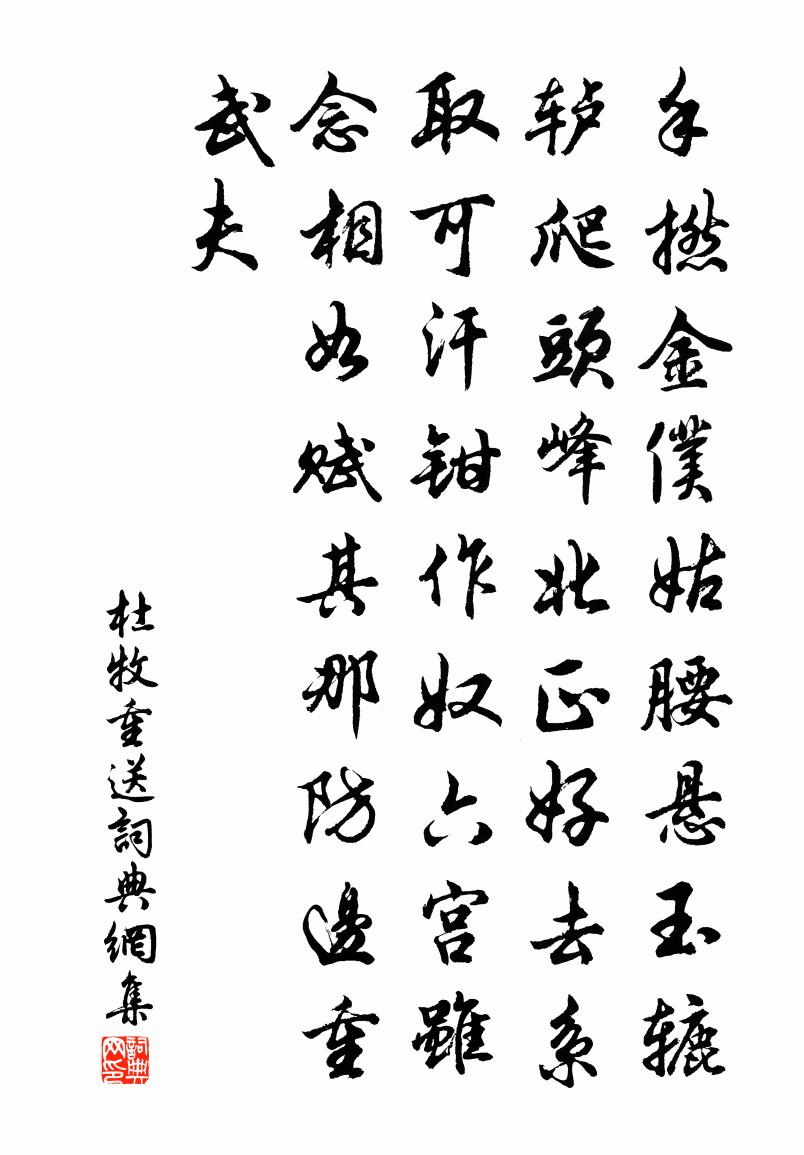 手撚金僕姑腰悬玉辘
轳爬頭峰北正好去系
取可汗鉗作奴六宫雖
念相如赋其那防邊重
武夫
杜牧重送詞典網集
詞典网印